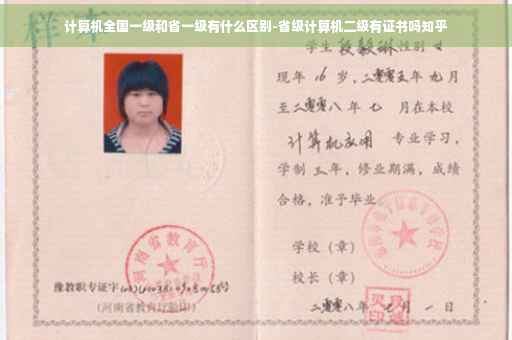 计算机全国一级和省一级有什么区别-省级计算机二级有证书吗知乎
样本
学生段毅琳性别女
现年16岁,二零零五年九月
至二零零八年七月在本校
计算机应用 专业学习,
学制三年,修业期满,成绩
合格,准予毕业
学校(章)
校长(章)
二零零八年七月一日
河南省教育厅
豫教职专证字
(河南省教育厅验印)